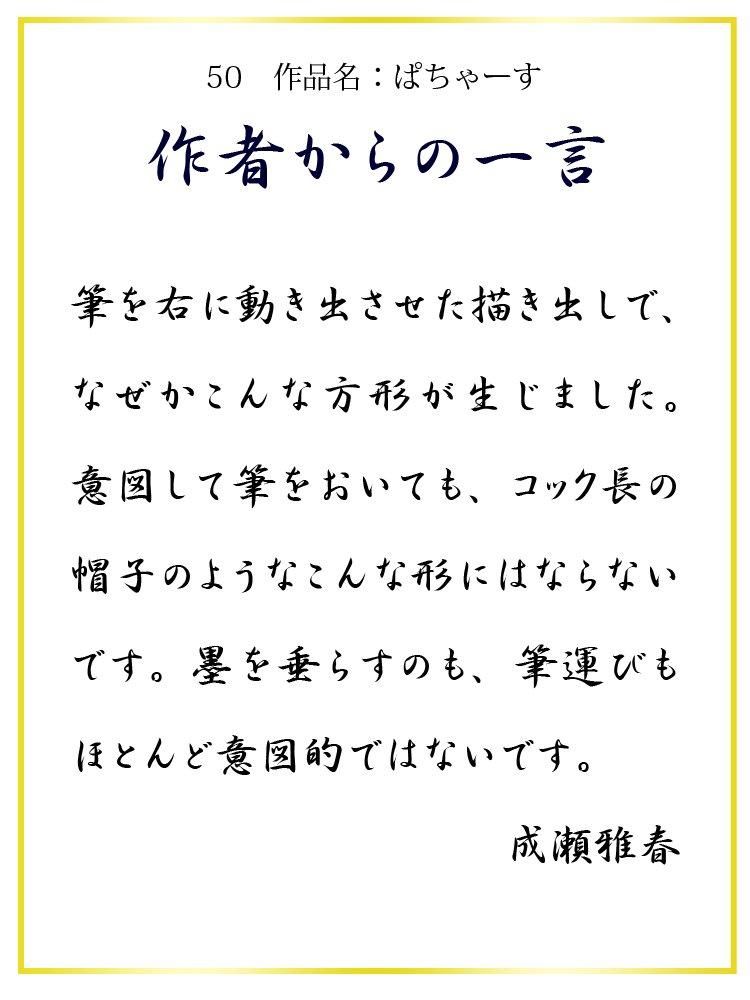 50　作品名：ぱちゃーす
作者からの一言
筆を右に動き出させた描き出しで、
なぜかこんな方形が生じました。
意図して筆をおいても、コック長の
帽子のようなこんな形にはならない
です。墨を垂らすのも、筆運びも
ほとんど意図的ではないです。
成瀬雅春